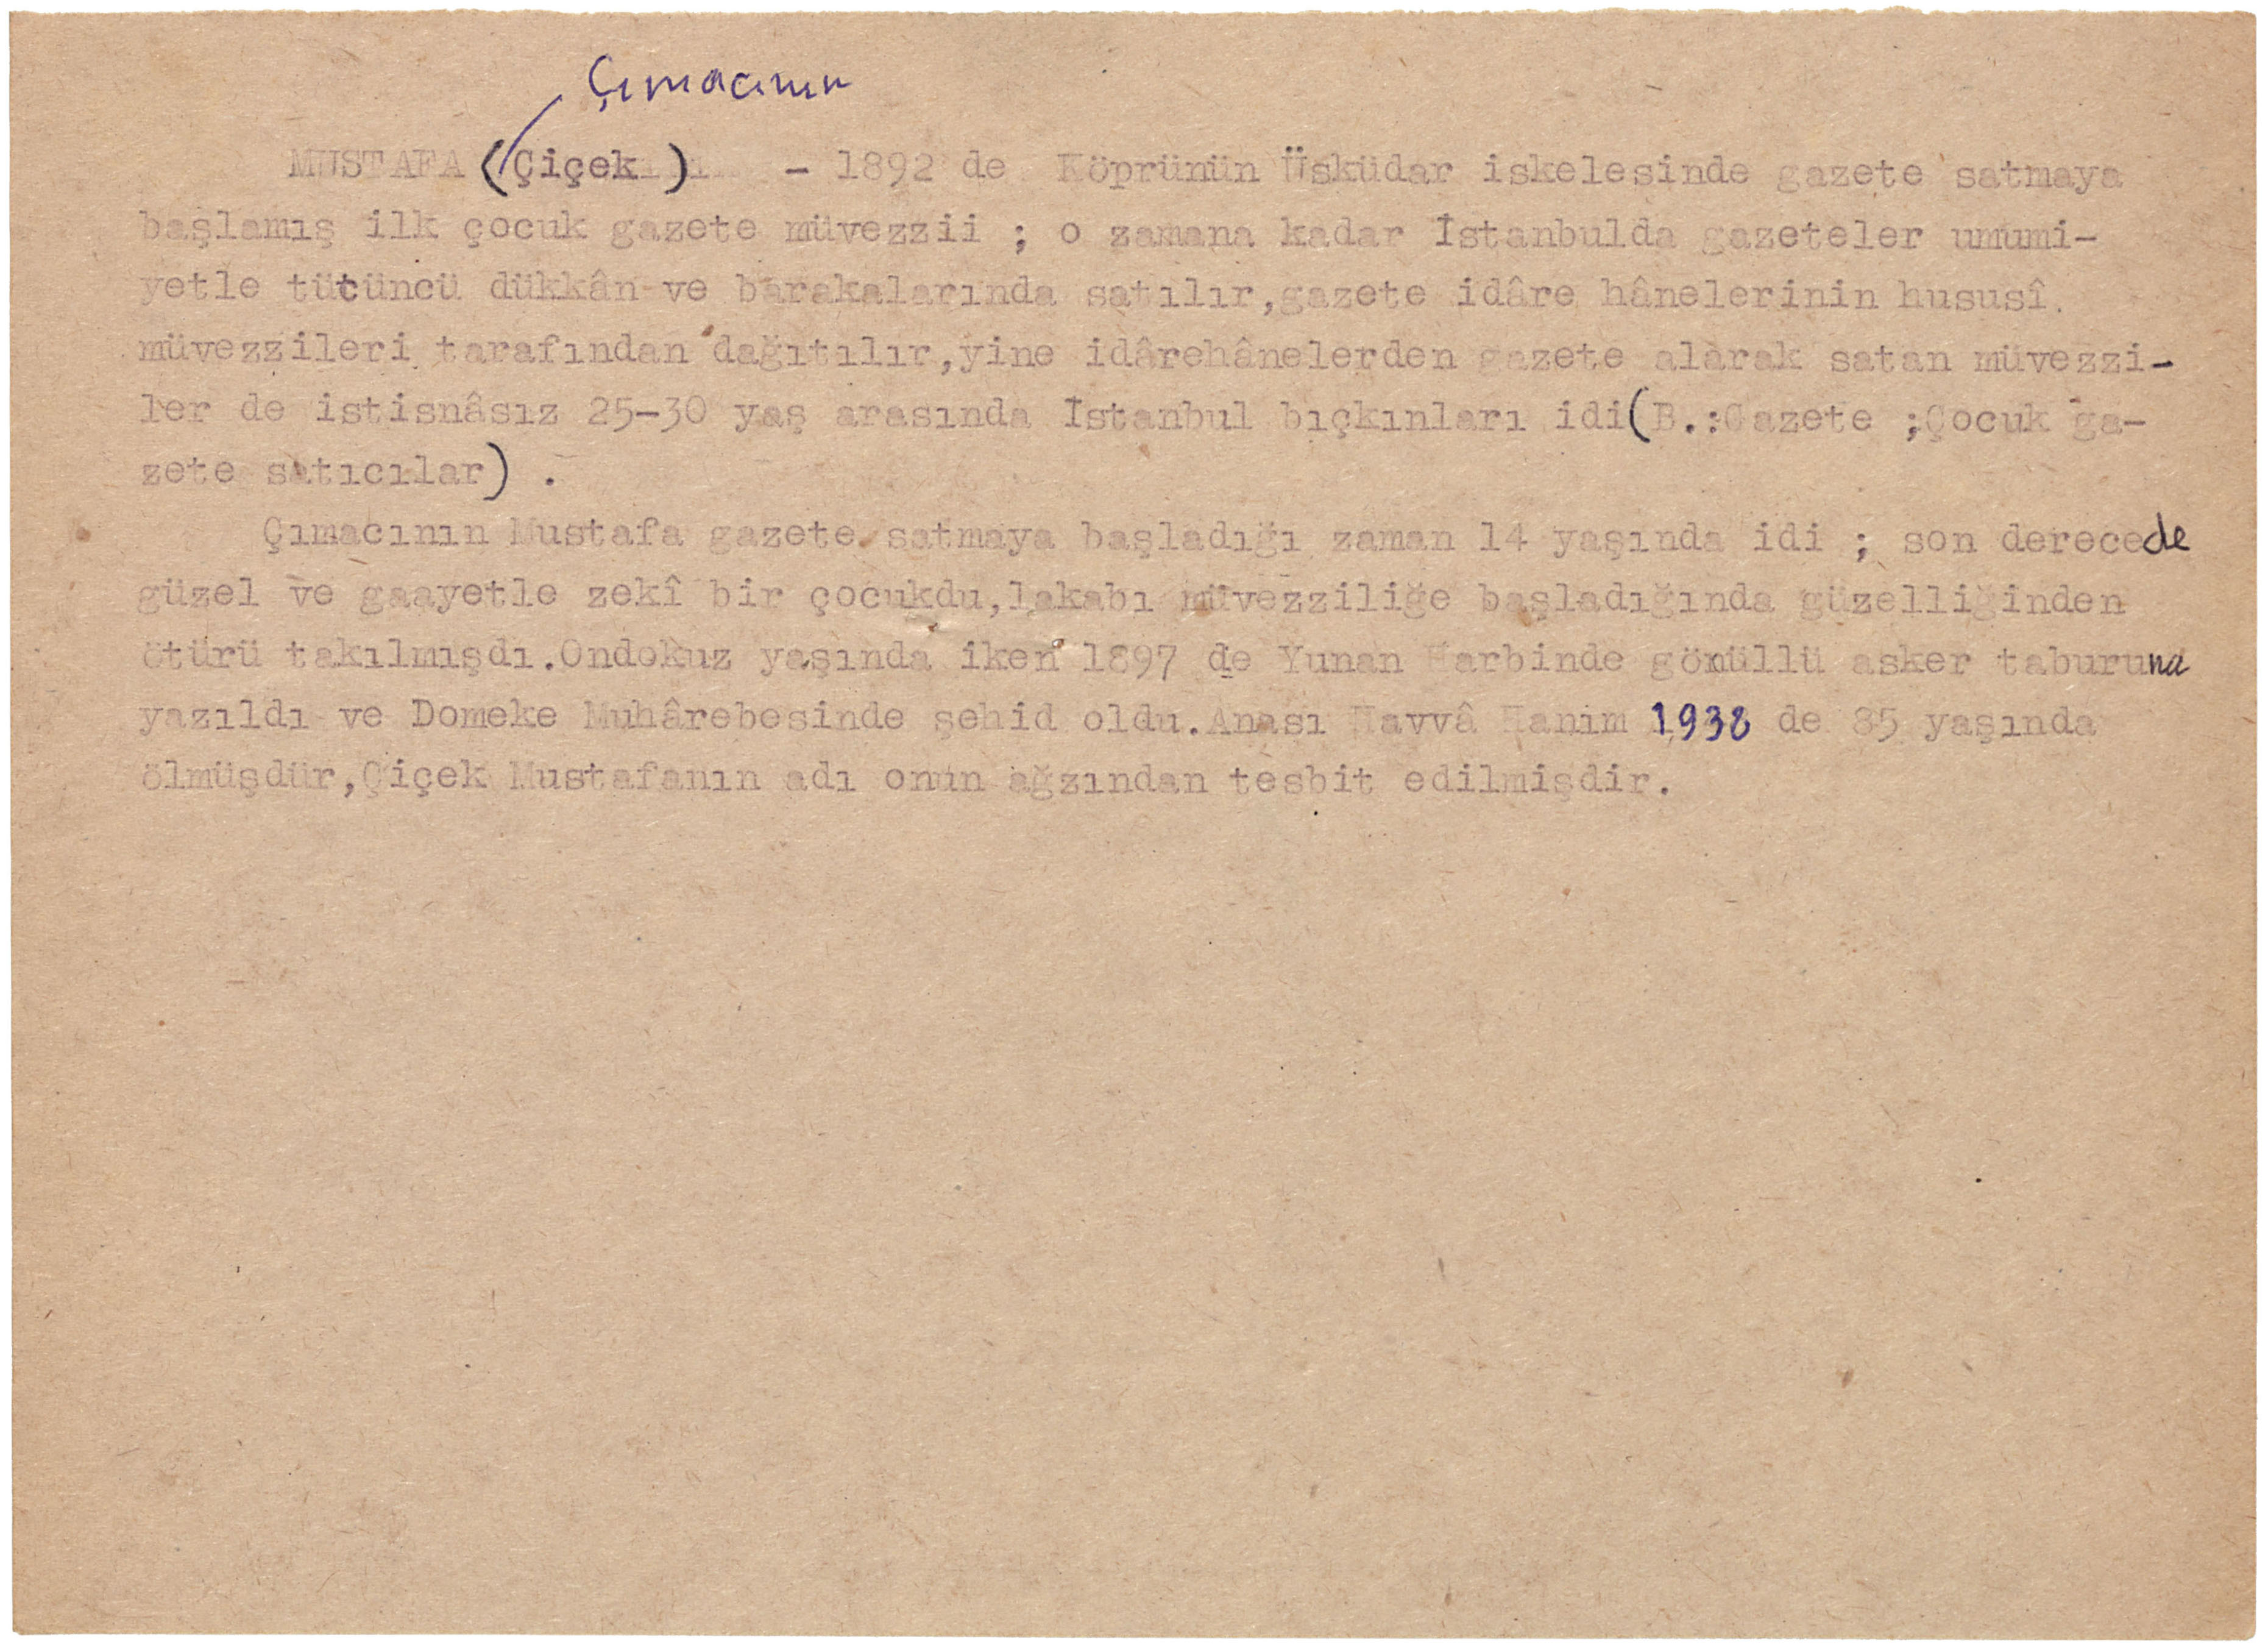 Çımacının
MUSTAFA (Çiçek) - 1892 de Köprünün Üsküdar iskelesinde gazete satmaya
başlamış ilk çocuk gazete müvezzii ; o zamana kadar İstanbulda gazeteler umumi-
yetle tütüncü dükkân ve barakalarında satılır,gazete idâre hânelerinin hususî
müvezzileri tarafından dağıtılır,yine idârehânelerden gazete alarak satan müvezzi-
ler de istisnâsız 25-30 yaş arasında İstanbul bıçkınları idi(B.:Gazete ;Çocuk ga-
zete satıcılar) .
Çımacının Mustafa gazete satmaya başladığı zaman 14 yaşında idi ; son derecede
güzel ve gaayetle zekî bir çocukdu,lakabı müvezziliğe başladığında güzelliğinden
ötürü takılmışdı.Ondokuz yaşında iken 1897 de Yunan Harbinde gönüllü asker taburuna
yazıldı ve Domeke Muhârebesinde şehid oldu.Anası Havvâ Hanım 1938 de 85 yaşında
ölmüşdür,Çiçek Mustafanın adı onun ağzından tesbit edilmişdir.